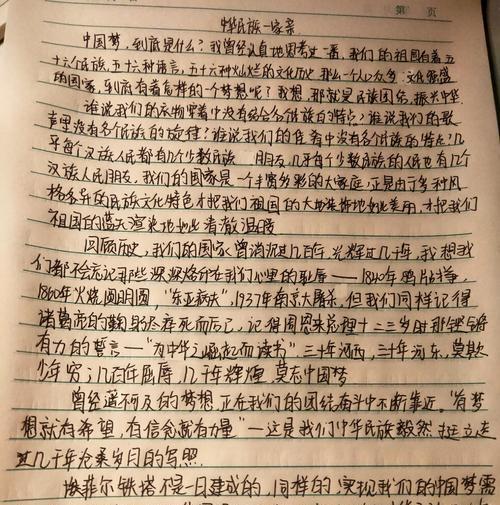 第 页
中华民族一家亲
中国梦，到底是什么？我曾经认真地思考过一番，我们的祖国有着五
十六个民族，五十六种语言，五十六种灿烂的文化历史，那么一个人口众多、文化
的国家，到底有着怎样的一个梦想呢？我想，那就是民族团结，振兴中华
谁说我们的衣物穿着中没有融合各个民族的特点？谁说我们的歌
声里没有各个民族的旋律？谁说我们的住着中没有多个民族的特点？几
乎每个汉族人民都有几个少数民族 朋友，几乎每个少数民族的人民也有几个
汉族人民朋友，我们的国家是一个丰富多彩的大家庭，正是由于多种风
格各异的民族文化特色才把我们祖国的大地装扮地如此美丽，才把我们
祖国的蓝天渲染地如此清澈温暖
回顾历史，我们的国家曾消沉过几百年，光辉过几千年，我想我
们都不会忘记那些深深烙印在我们心里的耻辱——1840年鸦片战争，
1860年火烧圆明园，“东亚病夫”，1937年南京大屠杀，但我们同样记得
诸葛亮的鞠躬尽瘁死而后已，记得周恩来总理十二三岁时那铿锵
有力的誓言——“为中华之崛起而读书”，三十年河西，三十年河东，莫欺
少年穷；几百年屈辱，几千年辉煌，莫忘中国梦
曾经遥不可及的梦想，正在我们的团结奋斗中不断靠近。“有梦
想就有希望，有信念就有力量”——这是我们中华民族毅然挺立走
过几千年沧桑岁月的写照
埃菲尔铁塔不是一日建成的，同样的，实现我们的中国梦需